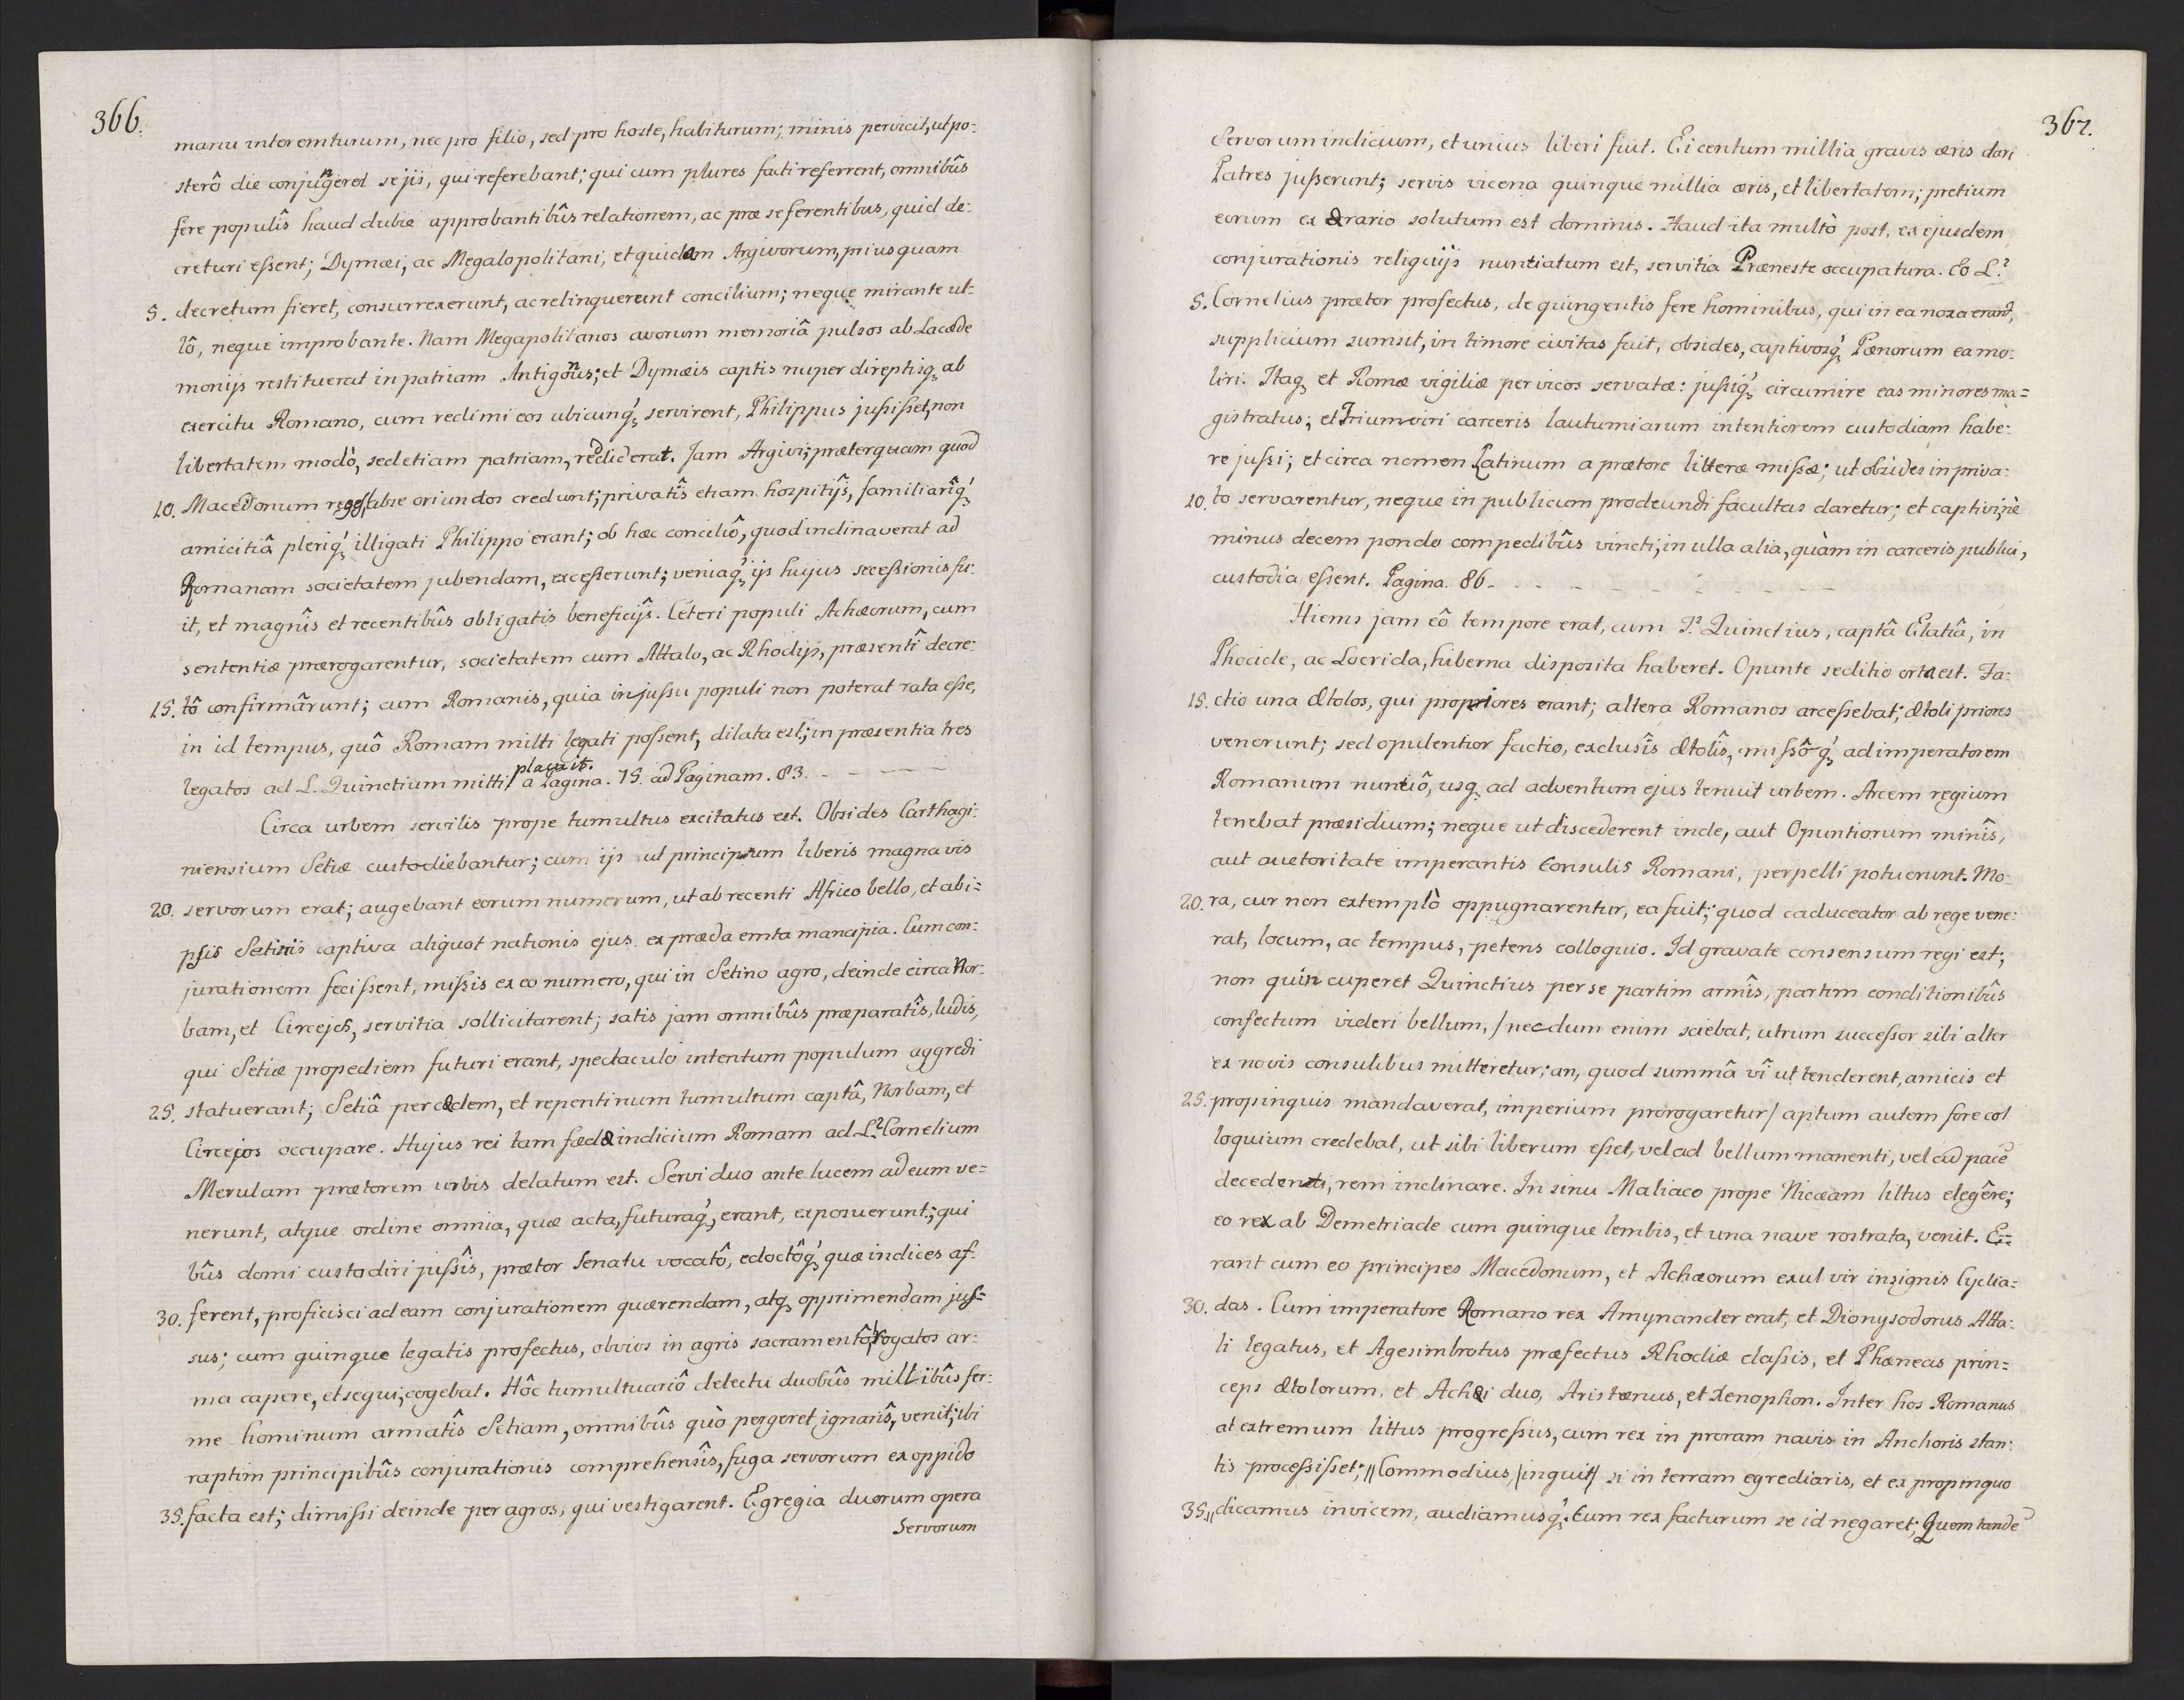 366.
manu interemturum, nec pro filio, sed pro hoste, habiturum; minis pervicit, ut po-
sterô die conjungeret se jis, qui referebant; qui cum plures facti referrent, omnibûs
fere populîs haud dubie approbantibûs relationem, ac præ se ferentibus, quid de-
creturi essent; Dymæi, ac Megalopolitani, et quidam Argivorum, priusquam
5. decretum fieret, consurrexerunt, ac relinquerunt concilium; neque mirante ul-
lô, neque improbante. Nam Megapolitanos avorum memoriâ pulsos ab Lacede
monijs restituerat in patriam Antigonus; et Dymæis captis nuper direptisq; ab
exercitu Romano, cum redimi eos ubicunq; servirent, Philippus jussisset, non
libertatem modò, sed etiam patriam, reddiderat. Jam Argivi; præterquam quod
10. Macedonum reges ab se oriundos credunt; privatîs etiam hospitijs, familiarîq;
amicitiâ pleriq; illigati Philippo erant; ob hæc conciliô, quod inclinaverat ad
Romanam societatem jubendam, excesserunt; veniaq; ijs hujus secessionis fu-
it, et magnîs et recentibûs obligatis beneficijs. Ceteri populi Achæorum, cum
sententiæ prærogarentur, societatem cum Attalo, ac Rhodijs, præsentî decre-
15. tô confirmârunt; cum Romanis, quia injussu populi non poterat rata esse,
in id tempus, quô Romam mitti legati possent, dilata est; in præsentia tres
legatos ad L. Quinctium mitti placuit. a Pagina. 75. ad Paginam. 83. - - - -
Circa urbem servilis prope tumultus excitatus est. Obsides Carthagi-
niensium Setiæ custodiebantur; cum ijs ut principum liberis magna vis
20. servorum erat; augebant eorum numerum, ut ab recenti Africo bello, et ab i-
psis Setinis captiva aliquot nationis ejus ex præda emta mancipia. Cum con-
jurationem fecissent, missis ex eo numero, qui in Setino agro, deinde circa Nor-
bam, et Circejos, servitia sollicitarent; satis jam omnibûs præparatîs, ludis,
qui Setiæ propediem futuri erant, spectaculo intentum populum aggredi
25. statuerant; Setiâ per cædem, et repentinum tumultum captâ, Norbam, et
Circejos occupare. Hujus rei tam fœdæ indicium Romam ad L. Cornelium
Merulam prætorem urbis delatum est. Servi duo ante lucem ad eum ve-
nerunt, atque ordine omnia, quæ acta, futuraq; erant, exposuerunt; qui
bûs domi custodiri jussîs, prætor Senatu vocatô, edoctôq; quæ indices af-
30. ferent, proficisci ad eam conjurationem quærendam, atq; opprimendam jus-
sus; cum quinque legatis profectus, obvios in agris sacramentô rogatos ar-
ma capere, et sequi, cogebat. Hôc tumultuariô delectu duobûs millibûs fer-
me hominum armatîs Setiam, omnibûs quò pergeret ignarîs, venit; ibi
raptim principibûs conjurationis comprehensîs, fuga servorum ex oppido
35. facta est; dimissi deinde per agros, qui vestigarent. Egregia duorum opera
Servorum
367.
Servorum indicum, et unius liberi fuit. Ei centum millia gravis æris dari
Patres jusserunt; servis vicena quinque millia æris, et libertatem; pretium
eorum ex ærario solutum est dominis. Haud ita multò post, ex ejusdem
conjurationis reliquijs nuntiatum est, servitia Præneste occupatura. Eo L.
5. Cornelius prætor profectus, de quingentis fere hominibus, qui in ea noxa erant,
supplicium sumsit, in timore civitas fuit, obsides, captivosq; Pœnorum ea mo-
liri. Itaq; et Romæ vigiliæ per vicos servatæ: jussiq; circumire eas minores ma-
gistratus; et Triumviri carceris lautumiarum intentiorem custodiam habe-
re jussi; et circa nomen Latinum a prætore litteræ missæ; ut obsides in priva-
10. to servarentur, neque in publicum prodeundi facultas daretur; et captivi, nè
minus decem pondo compedibûs vincti, in ulla alia, quàm in carceris publici,
custodia essent. Pagina. 86. - - - - - - -
Hiems jam eô tempore erat, cum T. Quinctius, captâ Elatiâ, in
Phocide, ac Locrida, hiberna disposita haberet. Opunte seditio orta est. Fa-
15. ctio una Ætolos, qui propriores erant; altera Romanos arcessebat; Ætoli priores
venerunt; sed opulentior factio, exclusîs Ætolîs, missôq; ad imperatorem
Romanum nuntiô, usq; ad adventum ejus tenuit urbem. Arcem regium
tenebat præsidium; neque ut discederent inde, aut Opuntiorum minîs,
aut auctoritate imperantis Consulis Romani, perpelli potuerunt. Mo-
20. ra, cur non extemplò oppugnarentur, ea fuit; quod caduceator ab rege vene-
rat, locum, ac tempus, petens colloquio. Id gravate consensum regi est;
non quin cuperet Quinctius per se partim armîs, partim conditionibûs
confectum videri bellum, /necdum enim sciebat, utrum successor sibi alter
ex novis consulibus mitteretur; an, quod summâ vî ut tenderent, amicis et
25. propinquis mandaverat, imperium prorogaretur/ aptum autem fore col
loquium credebat, ut sibi liberum esset, vel ad bellum manenti, vel ad pacē
decedenti, rem inclinare. In sinu Maliaco prope Nicæam littus elegêre;
eo rex ab Demetriade cum quinque lembis, et una nave rostrata, venit. E-
rant cum eo principes Macedonum, et Achæorum exul vir insignis Cyclia-
30. das. Cum imperatore Romano rex Amynander erat, et Dionysodorus Atta-
li legatus, et Agesimbrotus præfectus Rhodiæ classis, et Phæneas prin-
ceps Ætolorum, et Achæi duo, Aristænus, et Xenophon. Inter hos Romanus
at extremum littus progressus, cum rex in proram navis in Anchoris stan-
tis processisset; „Commodius, /inquit/ si in terram egrediaris, et ex propinquo
35. „dicamus invicem, audiamusq;. Cum rex facturum se id negaret; Quem tandē